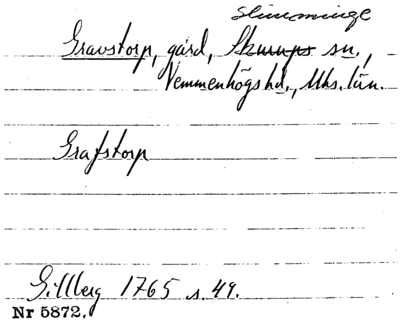 Slimminge
Gravstorp, gård, Skurups sn.,
Vemmenhögs hd., Mhs. län.
Grafstorp
Gillberg 1765 s. 49.
Nr 5872.